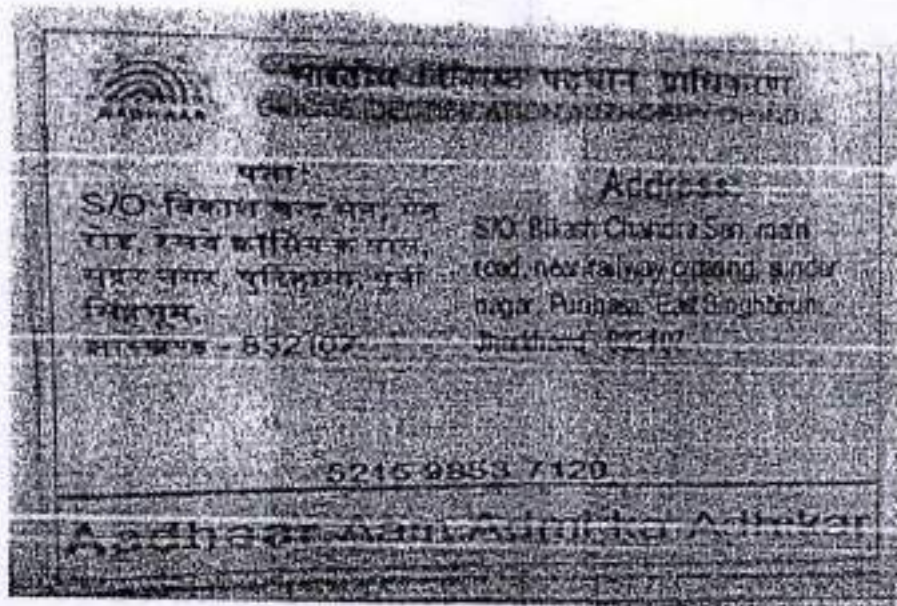 AADHAAR
भारतीय पहचान प्राधिकरण
पता:
S/O विकाश चन्द्र सेन, मेन
रोड, रेलवे क्रोसिंग के पास,
सुंदर नगर, पुरिहासा, पूर्बी
सिंहभूम,
झारखण्ड - 832107
Address:
S/O Bikash Chandra Sen, main
road, near railway crossing, sundar
nagar, Purihasa, East Singhbhum,
Jharkhand, 832107
7120
Aadhaar-Aam Admi ka Adhikar